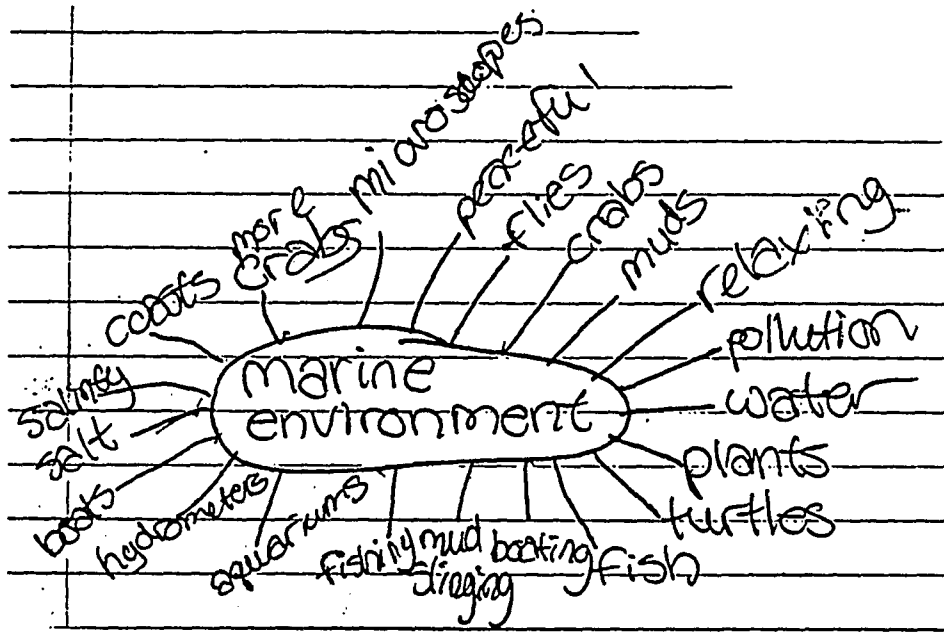 marine
environment
coats
more
crabs
microscopes
peaceful
flies
crabs
muds
relaxing
pollution
water
plants
turtles
fish
boating
mud
slinging
fishing
aquariums
hydrometers
boats
salt
salinity